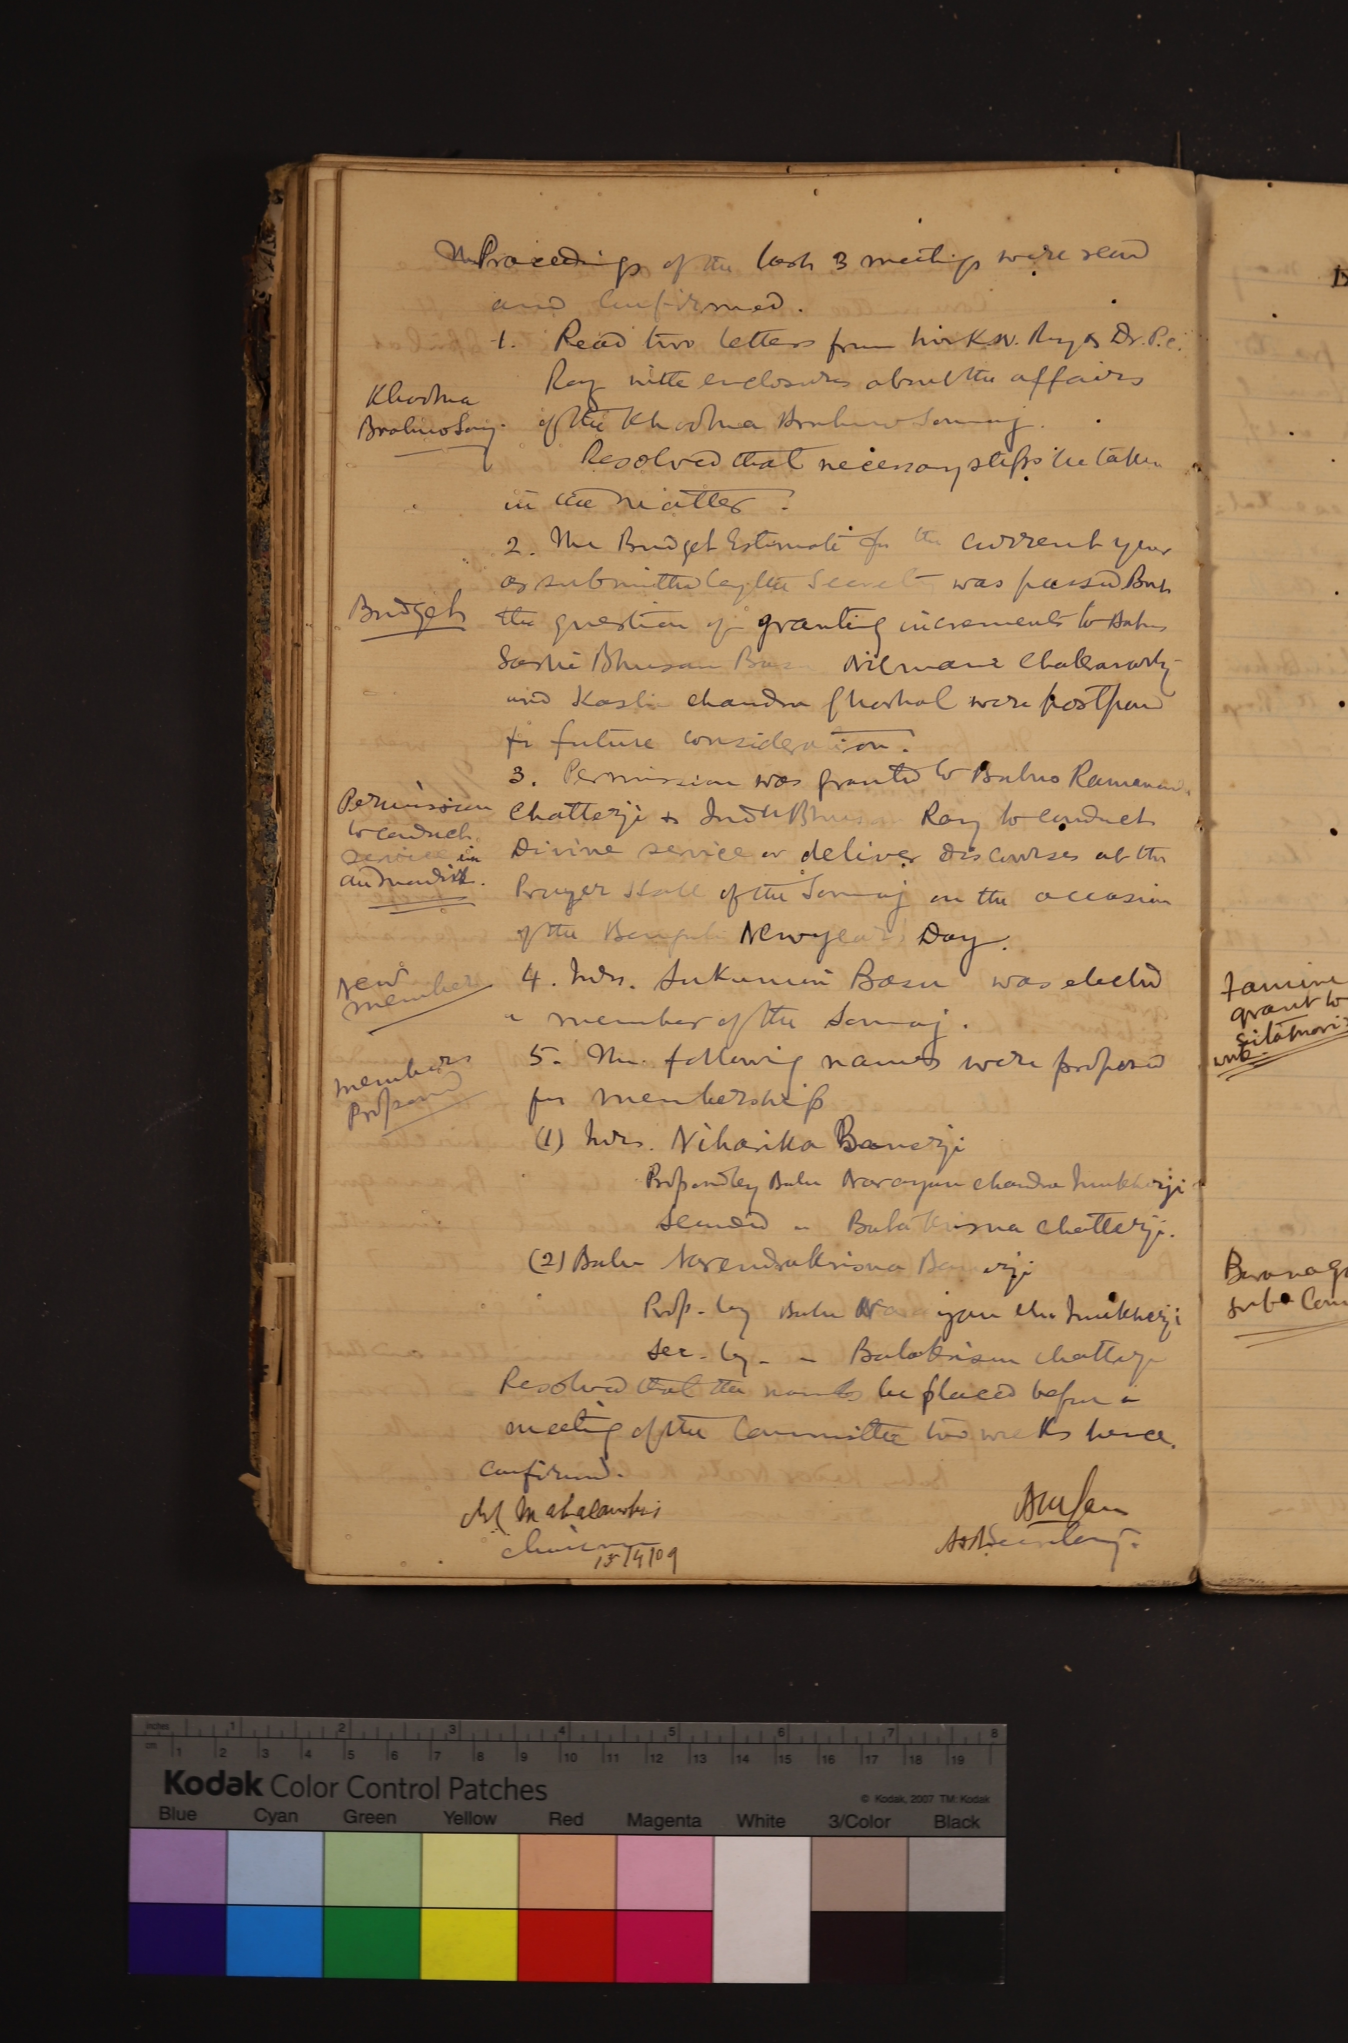 The Proceedings of the last 3 meetings were read
and Confirmed.
1. Read two letters from K. N. Ray & Dr. P. C.
Ray with enclosures about the affairs
of the Khodma Brahmo Samaj.
Khodma
Brahmo Samaj.
Resolved that necessary steps be taken
in the matter.
2. The Budget Estimate for the current year
as submitted by the Secretary was passed But
Budget
the question of granting increments to Babus
Sashi Bhusan Basu Nilmani Chakravarty
and Kashi Chandra Ghoshal were postponed
for future consideration.
3. Permission was granted to Babus Ramananda
Permission
to conduct
service in
Chatterji & Indu Bhusan Ray to conduct
Divine service or deliver discourses at the
Prayer Hall of the Samaj on the occasion
of the Bengali New year's Day.
New
member
4. Mrs. Sukumari Basu was elected
a member of the Samaj.
members
Proposed
5. The following names were proposed
for membership
(1) Mrs. Niharika Banerji
Proposed by Babu Narayan Chandra Mukherji
Seconded " Balakrisna Chatterji.
(2) Babu Narendrakrisna Banerji
Prop. by Babu Narayan Ch. Mukherji
Sec. by - " Balakrisna Chatterji
Resolved that the names be placed before a
meeting of the Committee two weeks hence.
Confirmed.
Mahalanobis
Chairman
15/4/09
Asst. Secretary.
Famine
grant to
Sitamari
sub Com
inches 1 2 3 4 5 6 7 8
cm 1 2 3 4 5 6 7 8 9 10 11 12 13 14 15 16 17 18 19
Kodak Color Control Patches
© Kodak, 2007 TM: Kodak
Blue Cyan Green Yellow Red Magenta White 3/Color Black